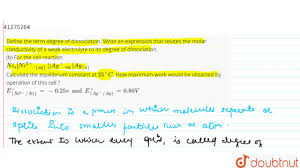 41275264
Define the term degree of dissociation. Write an expression that relates the molar
conductivity of a weak electrolyte to its degree of dissociation.
(b) For the cell reaction
Ni(s)|Ni²⁺(aq)||Ag⁺(aq)|Ag(s)
Calculate the equilibrium constant at 25°C. How maximum work would be obtained by
operation of this cell ?
E°(Ni²⁺/Ni) = −0.25v and E°(Ag⁺/Ag) = 0.80V
Dissociation is a process in which molecules separate or
splits into smaller particles such as atom.
The extent to which they split, is called degree of
doubtnut